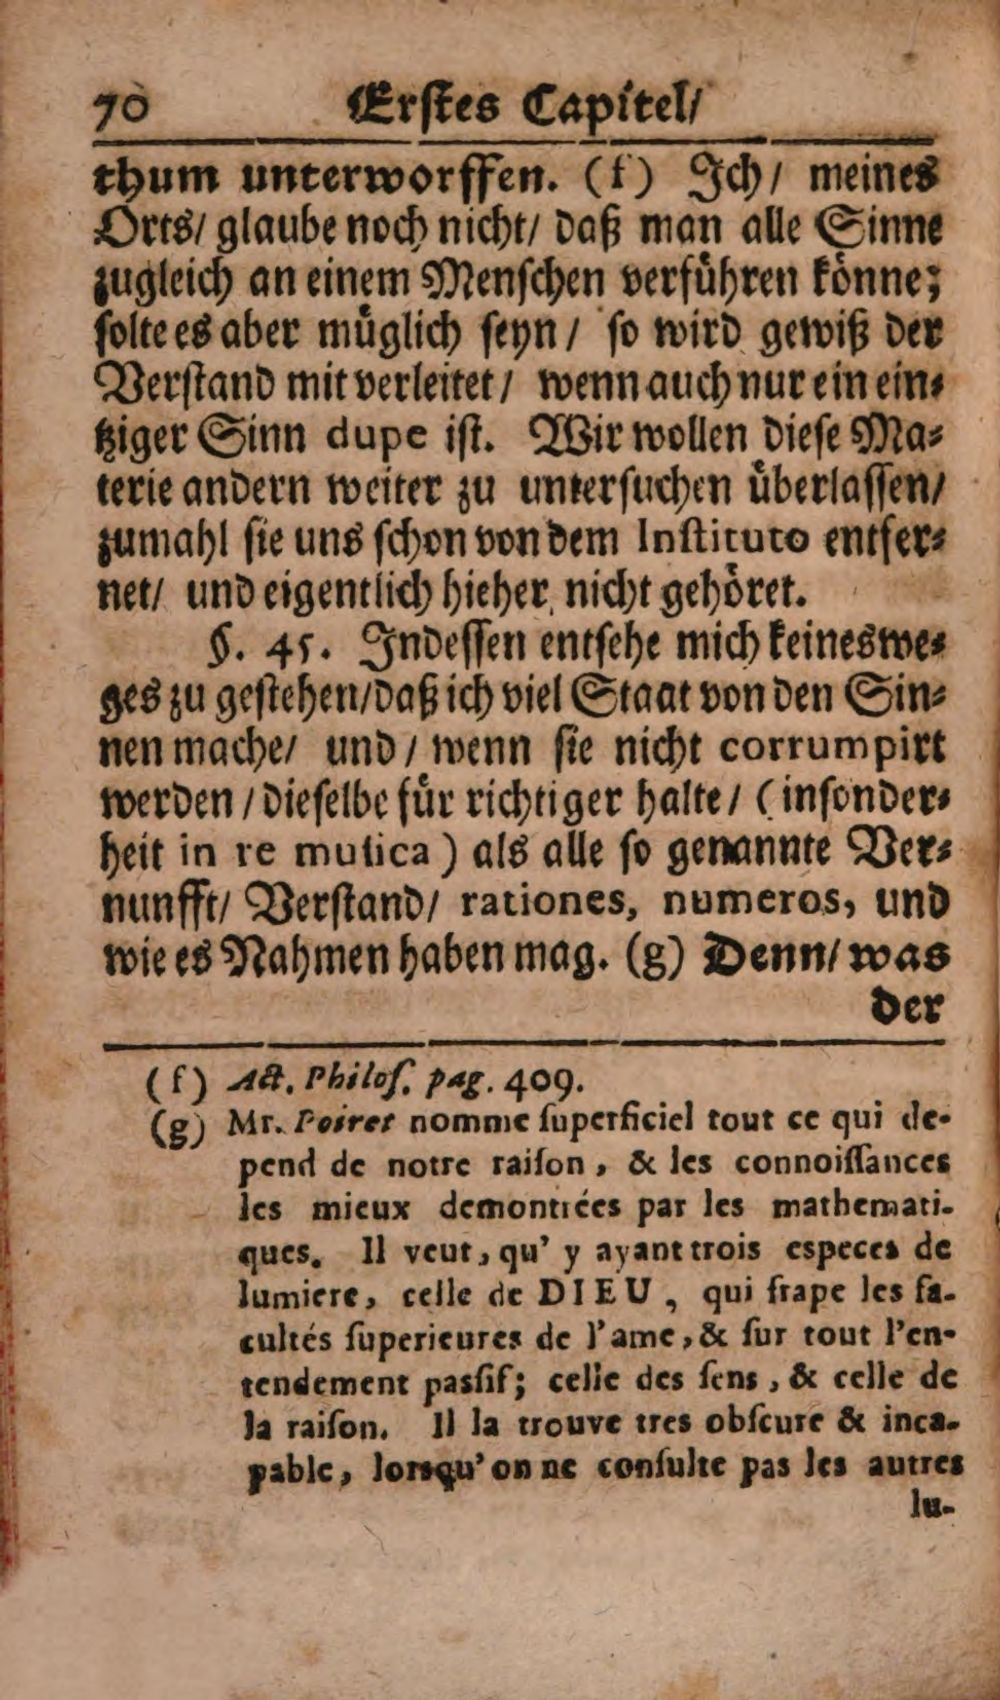 70 Erstes Capitel/
thum unterworffen. (f) Ich/ meines
Orts/ glaube noch nicht/ daß man alle Sinne
zugleich an einem Menschen verführen könne;
solte es aber müglich seyn/ so wird gewiß der
Verstand mit verleitet/ wenn auch nur ein ein-
tziger Sinn dupe ist. Wir wollen diese Ma-
terie andern weiter zu untersuchen überlassen/
zumahl sie uns schon von dem Instituto entfer-
net/ und eigentlich hieher nicht gehöret.
§. 45. Indessen entsehe mich keineswe-
ges zu gestehen/ daß ich viel Staat von den Sin-
nen mache/ und/ wenn sie nicht corrumpirt
werden/ dieselbe für richtiger halte/ (insonder-
heit in re musica) als alle so genannte Ver-
nunfft/ Verstand/ rationes, numeros, und
wie es Nahmen haben mag. (g) Denn/ was
der
(f) Act. Philos. pag. 409.
(g) Mr. Poiret nomme superficiel tout ce qui de-
pend de notre raison, & les connoissances
les mieux demontrées par les mathemati-
ques. Il veut, qu' y ayant trois especes de
lumiere, celle de DIEU, qui frape les fa-
cultés superieures de l'ame, & sur tout l'en-
tendement passif; celle des sens, & celle de
la raison. Il la trouve tres obscure & inca-
pable, lorsqu' on ne consulte pas les autres
lu-